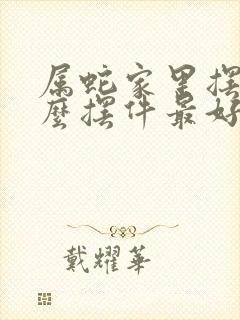 属蛇家里摆
麼摆件最好
戴耀華